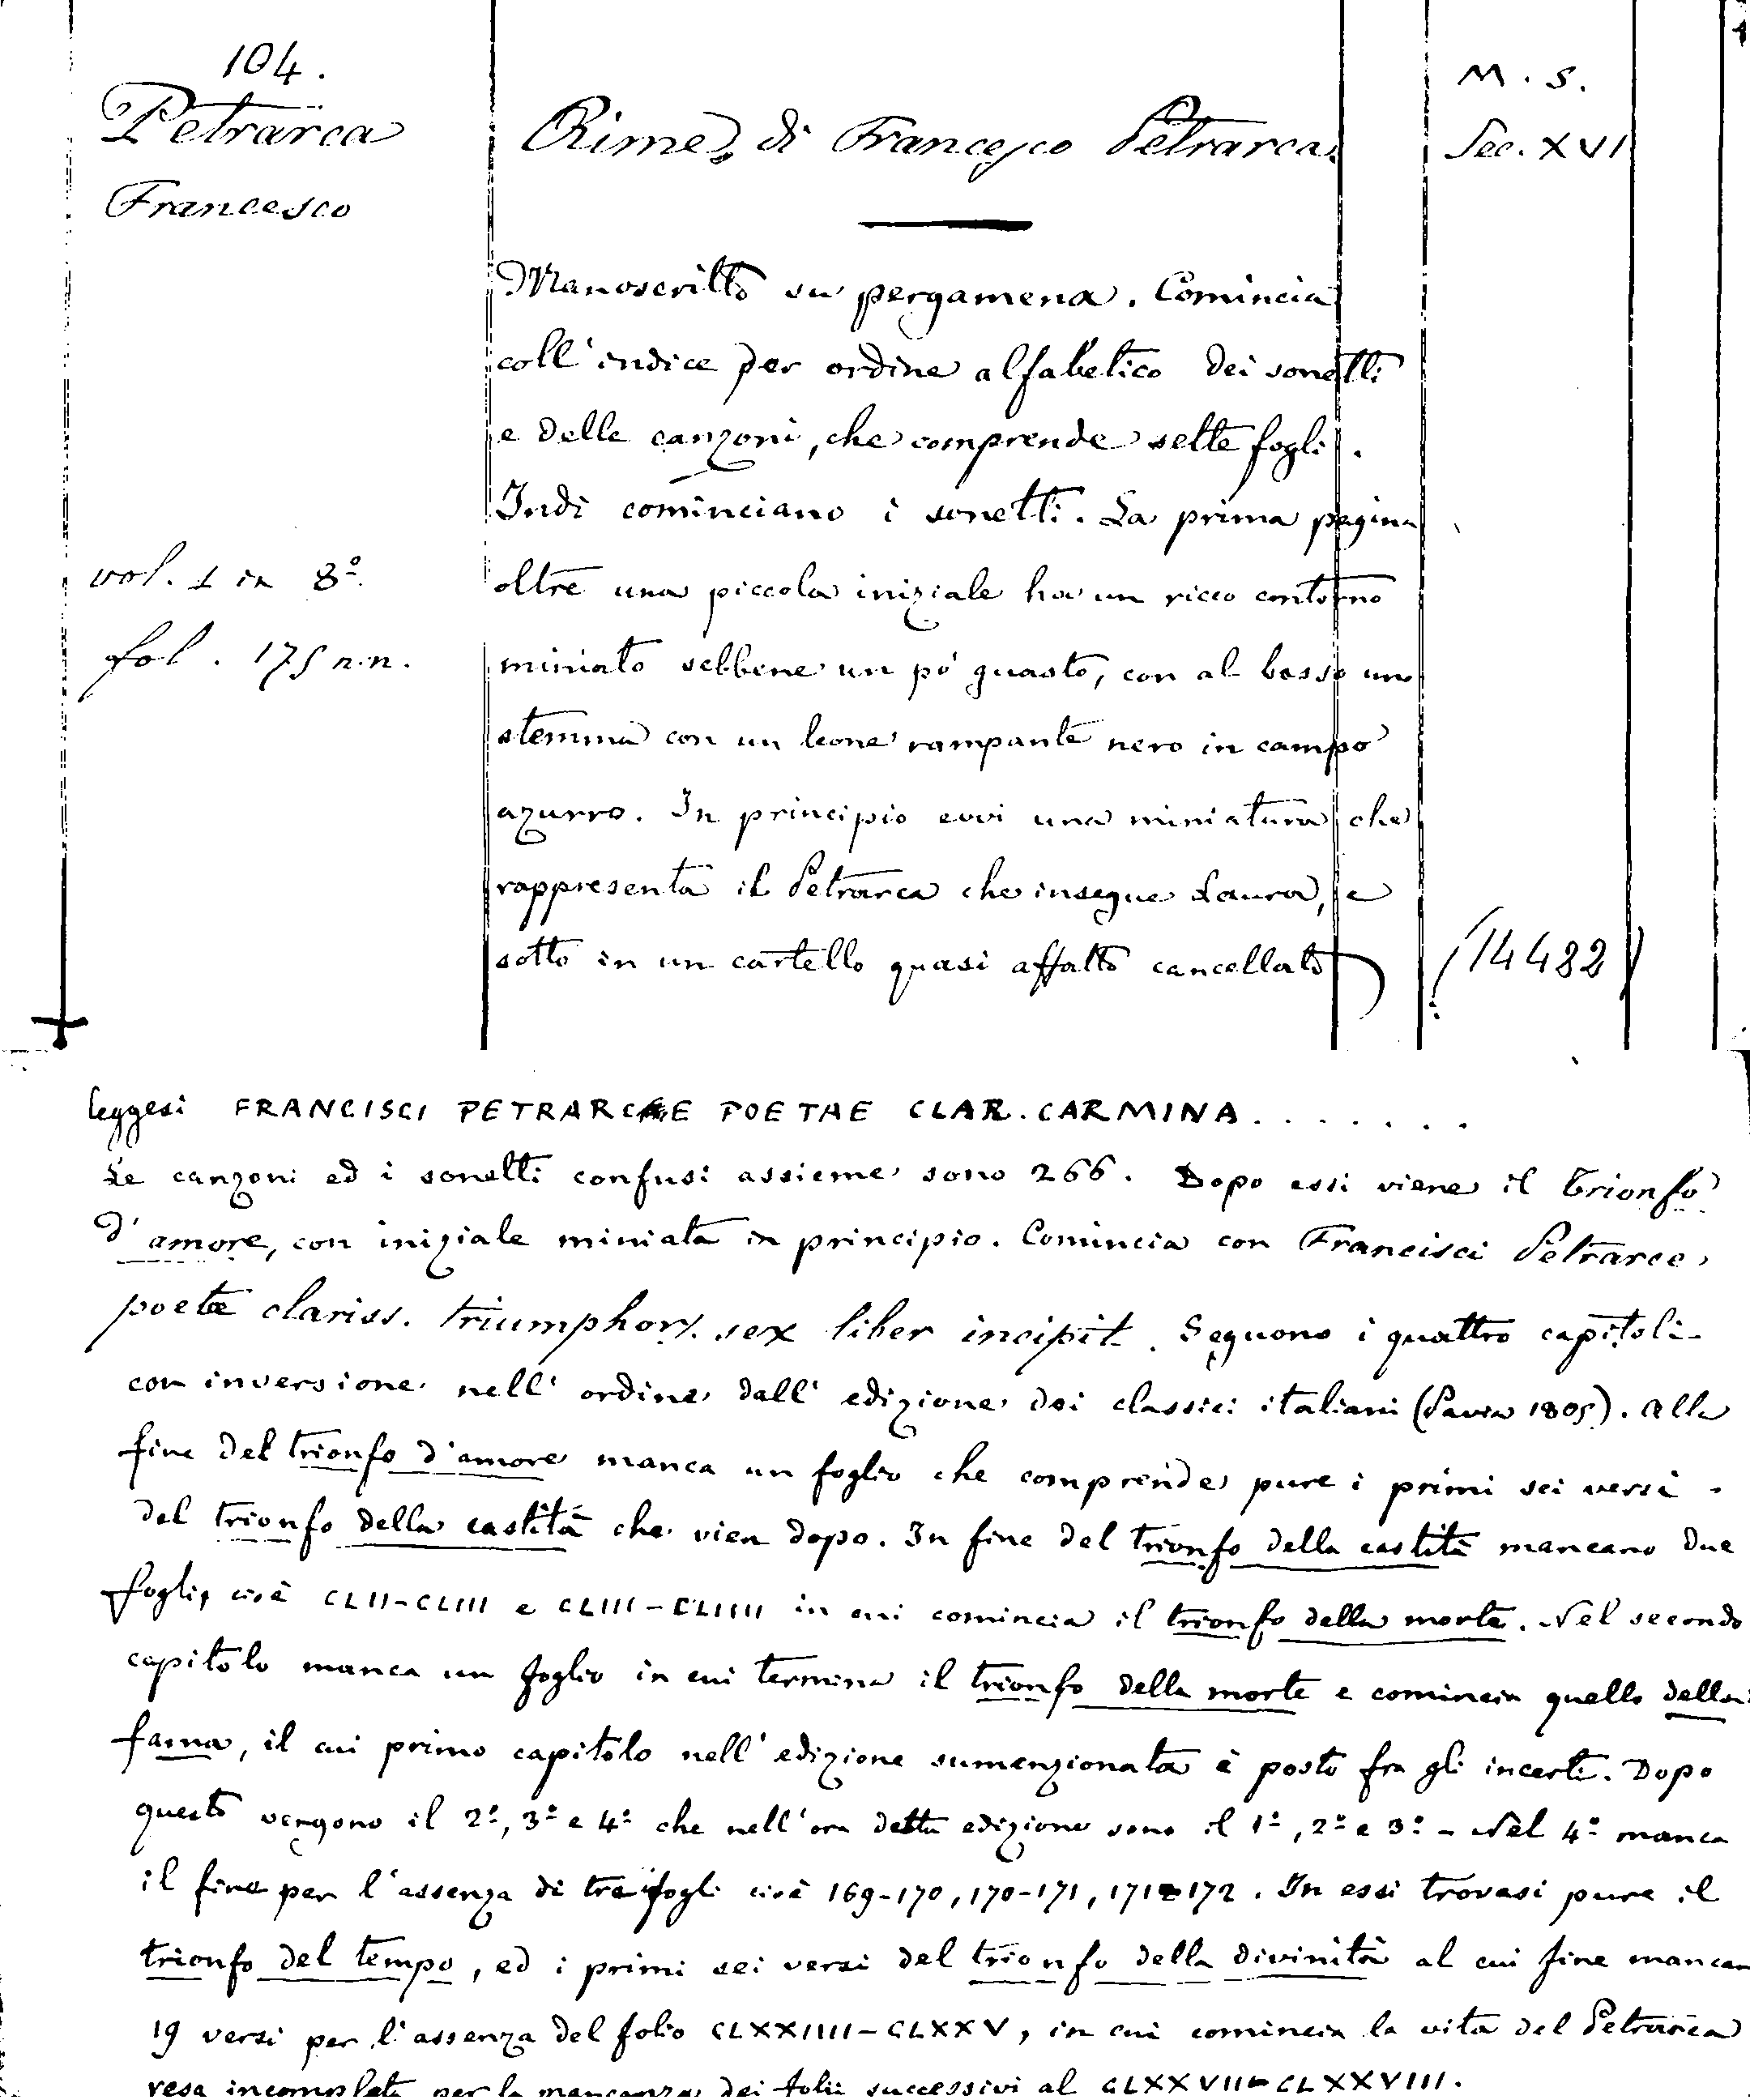 104.
Petrarca
Francesco
Rime di Francesco Petrarca.
M. S.
Sec. XVI
Manoscritto su pergamena. Comincia
coll'indice per ordine alfabetico dei sonetti
e delle canzoni, che comprende sette fogli.
Indi cominciano i sonetti. La prima pagina
vol. 1 in 8º.
oltre una piccola iniziale ha un ricco contorno
fol. 175 n.n.
miniato sebbene un pò guasto, con al basso uno
stemma con un leone rampante nero in campo
azurro. In principio evvi una miniatura che
rappresenta il Petrarca che insegue Laura, e
sotto in un cartello quasi affatto cancellato
(14482)
leggesi FRANCISCI PETRARCAE POETAE CLAR. CARMINA.......
Le canzoni ed i sonetti confusi assieme sono 266. Dopo essi viene il trionfo
d'amore, con iniziale miniata in principio. Comincia con Francisci Petrarce
poetæ clariss. triumphor. sex liber incipit. Seguono i quattro capitoli
con inversione nell'ordine dall'edizione dei classici italiani (Pavia 1805). Alla
fine del trionfo d'amore manca un foglio che comprende pure i primi sei versi
del trionfo della castità che vien dopo. In fine del trionfo della castità mancano due
fogli, cioè CLII-CLIII e CLIII-CLIIII in cui comincia il trionfo della morte. Nel secondo
capitolo manca un foglio in cui termina il trionfo della morte e comincia quello della
fama, il cui primo capitolo nell'edizione sumenzionata è posto fra gli incerti. Dopo
questo vengono il 2º, 3º e 4º che nell'ora detta edizione sono il 1º, 2º e 3º - Nel 4º manca
il fine per l'assenza di tre fogli cioè 169-170, 170-171, 171-172. In essi trovasi pure il
trionfo del tempo, ed i primi sei versi del trionfo della divinità al cui fine mancan
19 versi per l'assenza del folio CLXXIIII-CLXXV, in cui comincia la vita del Petrarca
resa incompleta per la mancanza dei folii successivi al CLXXVII-CLXXVIII.